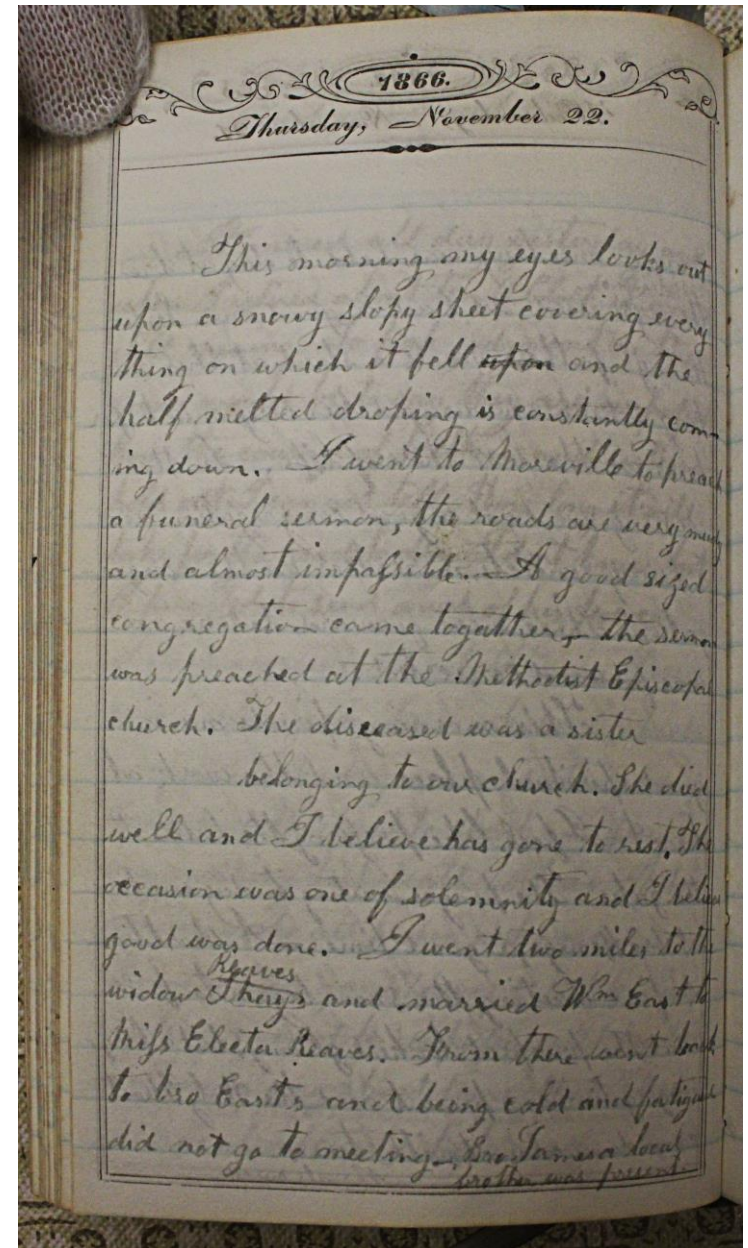 1866.
Thursday, November 22.
This morning my eyes looks out
upon a snowy slopy sheet covering every
thing on which it fell upon and the
half melted droping is constantly com-
ing down. I went to Moreville to preach
a funeral sermon, the roads are very mudy
and almost impassible. A good sized
congregation came togather, the sermon
was preached at the Methodist Episcopal
church. The diseeased was a sister
belonging to our church. She died
well and I believe has gone to rest. The
occasion was one of solemnity and I believe
good was done. I went two miles to the
Reaves
widow Thays and married Wm East to
Miss Electa Reaves. From there went back
to bro Easts and being cold and fatigued
did not go to meeting. Bro James a local
brother was present